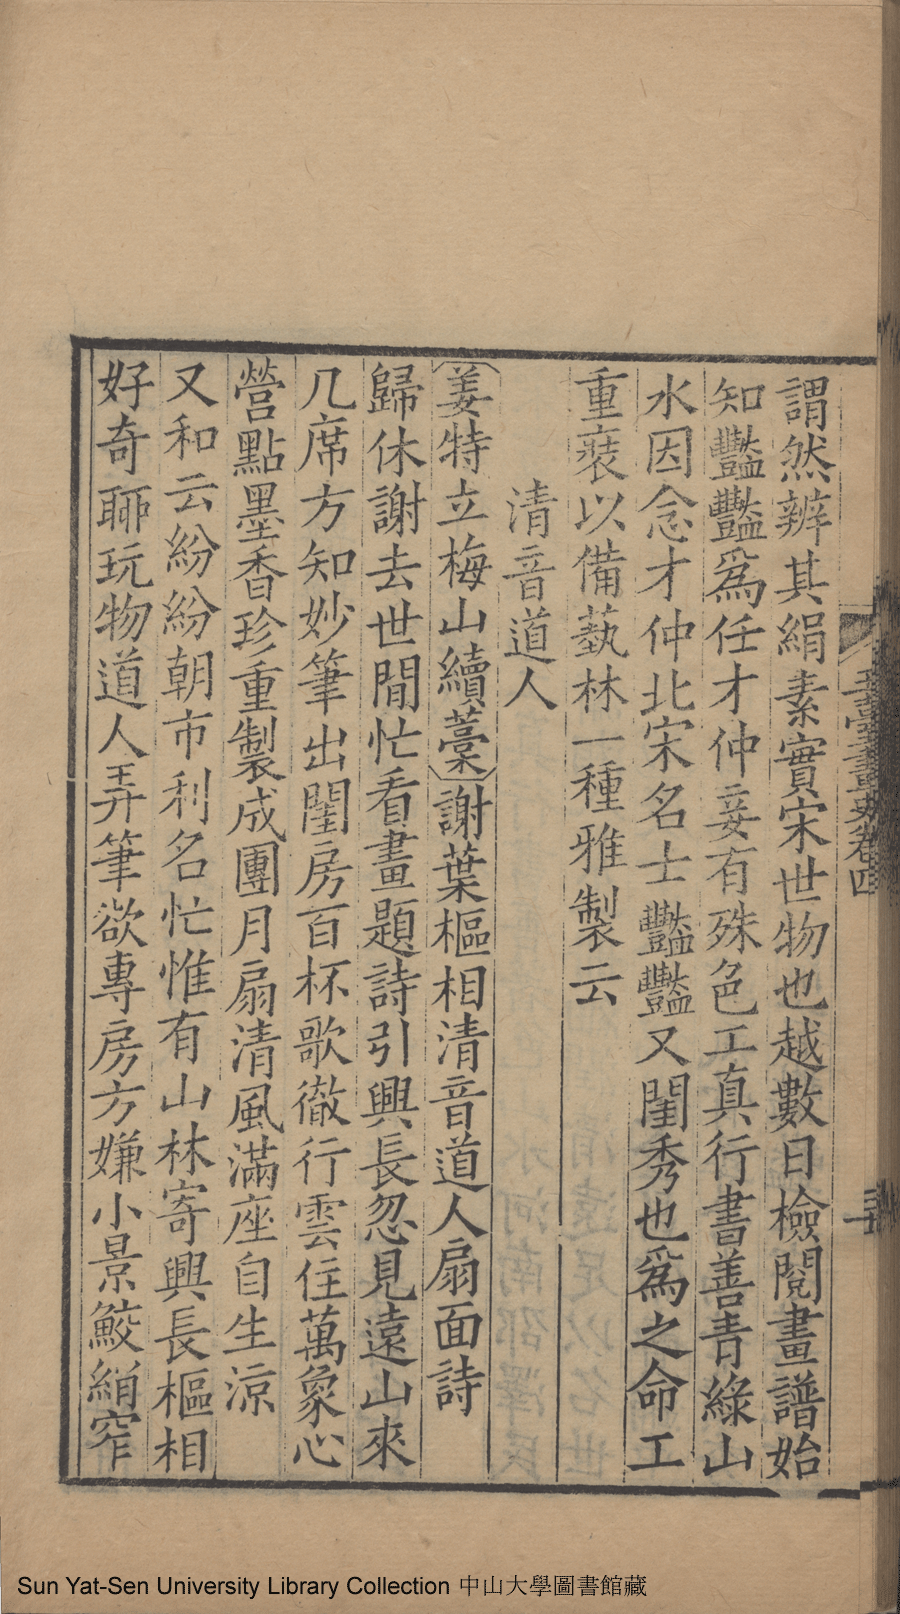 謂然辨其絹素實宋世物也越數日檢閱畫譜始
知豔豔爲任才仲妾有殊色工真行書善青綠山
水因念才仲北宋名士豔豔又閨秀也爲之命工
重裝以備藝林一種雅製云
清音道人
姜特立梅山續藁謝葉樞相清音道人扇面詩
歸休謝去世間忙看畫題詩引興長忽見遠山來
几席方知妙筆出閨房百杯歌徹行雲住萬象心
營點墨香珍重製成團月扇清風滿座自生涼
又和云紛紛朝市利名忙惟有山林寄興長樞相
好奇聊玩物道人弄筆欲專房方嫌小景鮫綃窄
玉臺畫史卷四
Sun Yat-Sen University Library Collection 中山大學圖書館藏